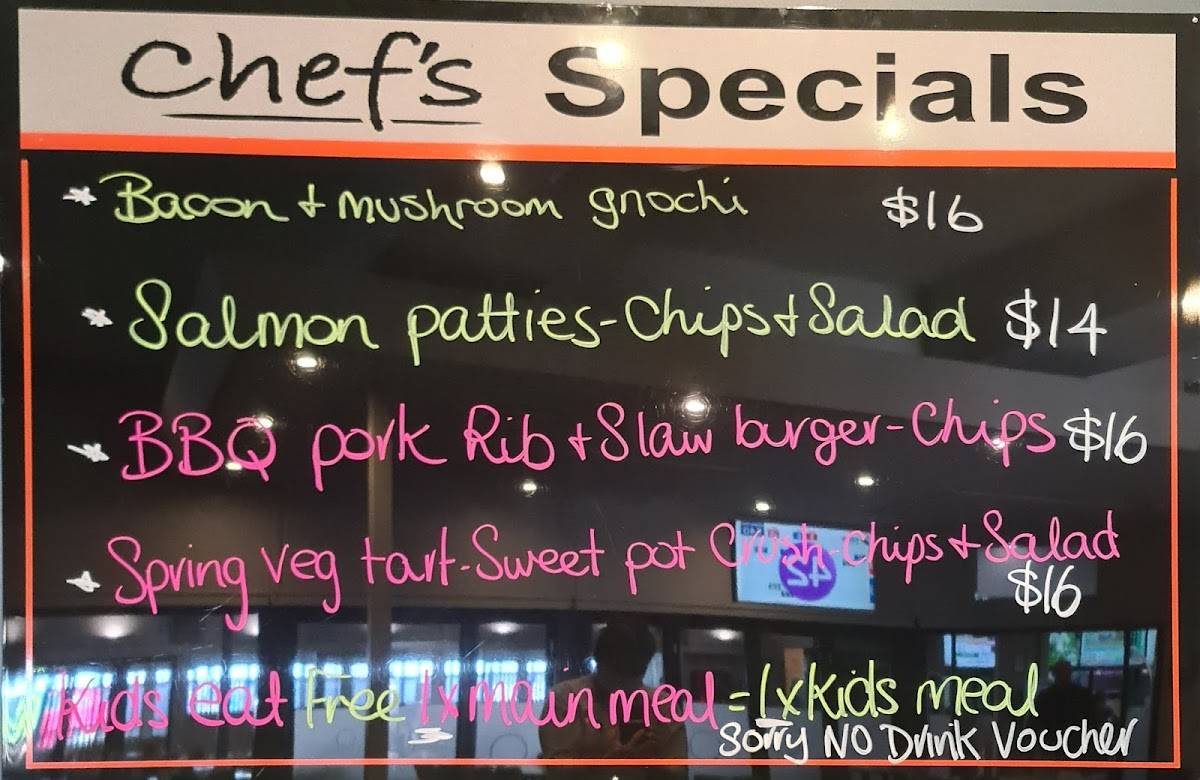 Chef's Specials
* Bacon + mushroom gnochi $16
* Salmon patties - Chips + Salad $14
* BBQ pork Rib + Slaw burger - Chips $16
* Spring veg tart - Sweet pot Crush - chips + Salad
$16
Kids eat Free 1x main meal = 1x Kids meal
Sorry NO Drink Voucher